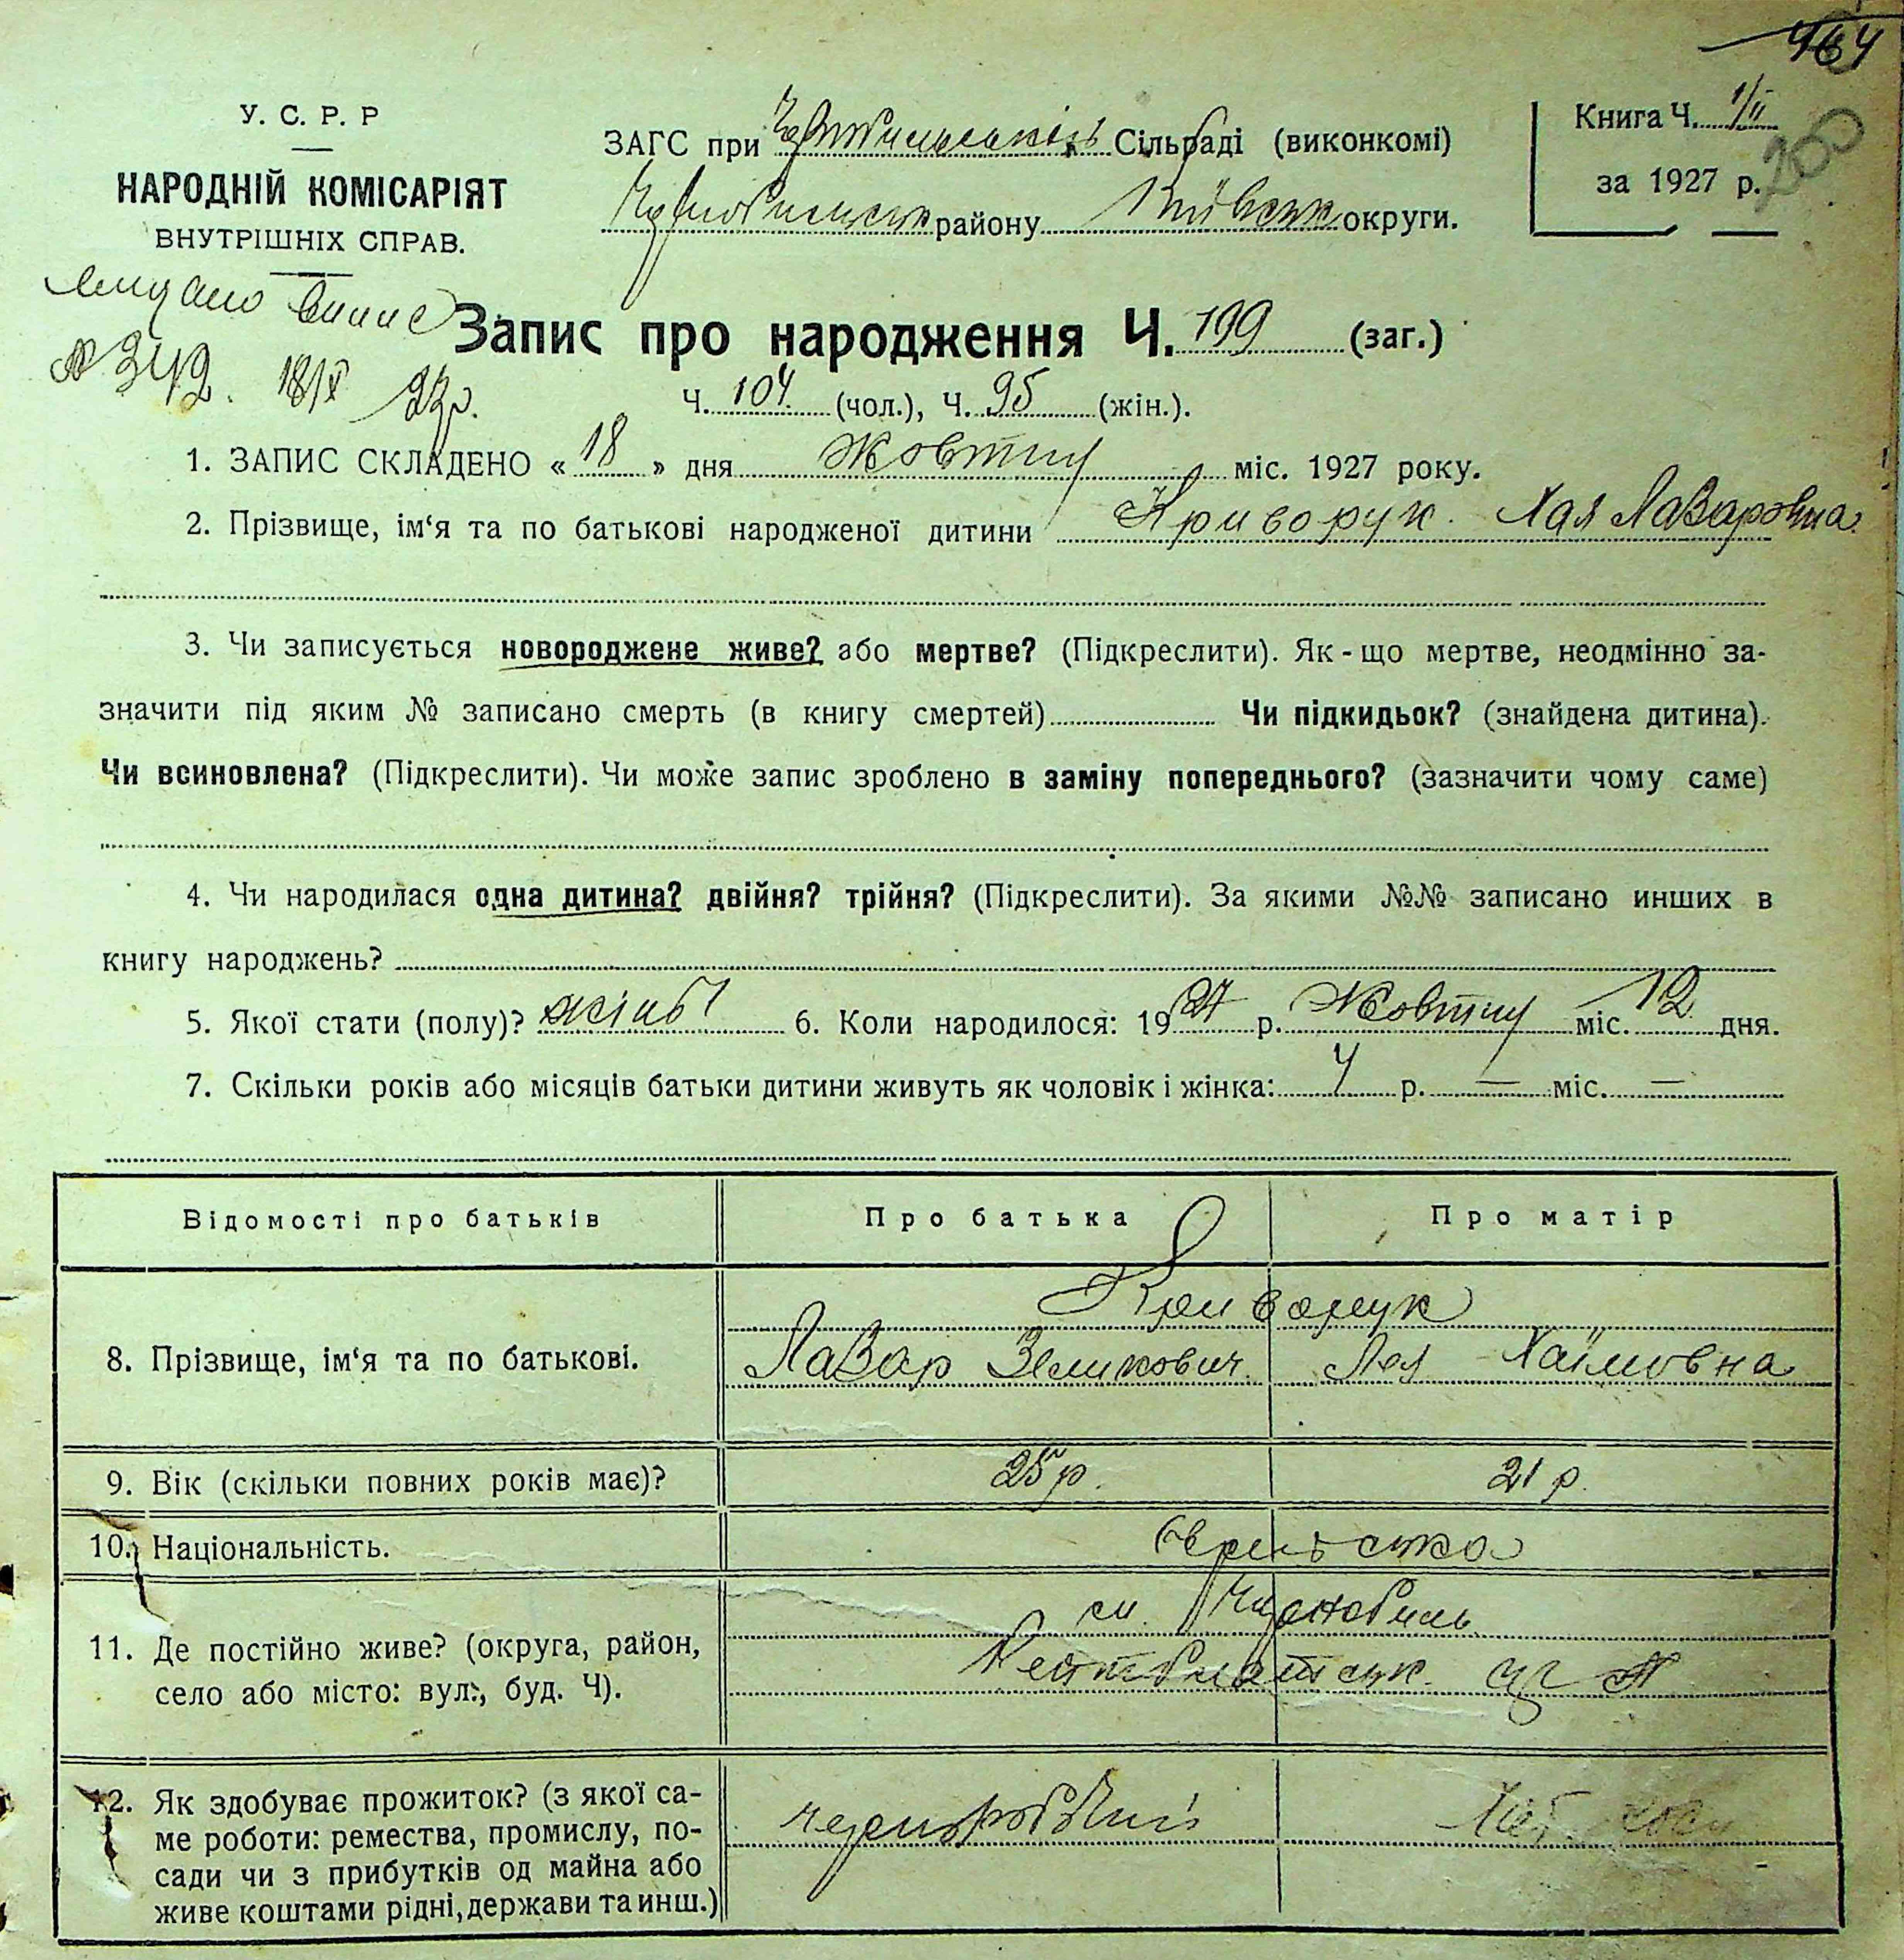 464
У. С. Р. Р
НАРОДНІЙ КОМІСАРІЯТ
ВНУТРІШНІХ СПРАВ.
ЗАГС при Сільраді (виконкомі)
району Київськ округи.
Книга Ч. 1/II
за 1927 р.
200
видано випис
№ 342. 18/X 27р.
Запис про народження Ч. 199 (заг.)
Ч. 104 (чол.), Ч. 95 (жін.).
1. ЗАПИС СКЛАДЕНО « 18 » дня Жовтня міс. 1927 року.
2. Прізвище, ім‘я та по батькові народженої дитини Криворук. Хая Лазаровна
3. Чи записується новороджене живе? або мертве? (Підкреслити). Як-що мертве, неодмінно за-
значити під яким № записано смерть (в книгу смертей) Чи підкидьок? (знайдена дитина).
Чи всиновлена? (Підкреслити). Чи може запис зроблено в заміну попереднього? (зазначити чому саме)
4. Чи народилася одна дитина? двійня? трійня? (Підкреслити). За якими №№ записано инших в
книгу народжень?
5. Якої стати (полу)? жіноч 6. Коли народилося: 1927 р. Жовтня міс. 12 дня.
7. Скільки років або місяців батьки дитини живуть як чоловік і жінка: 4 р. — міс. —
Відомості про батьків Про батька Про матір
Криворук
8. Прізвище, ім‘я та по батькові. Лазар Зеликович Лея Хаїмовна
9. Вік (скільки повних років має)? 25 р. 21 р.
10. Національність. Єврейська
м. Чорнобиль
11. Де постійно живе? (округа, район,
село або місто: вул., буд. Ч).
12. Як здобуває прожиток? (з якої са-
ме роботи: ремества, промислу, по-
сади чи з прибутків од майна або
живе коштами рідні, держави та инш.)
чорноробочий